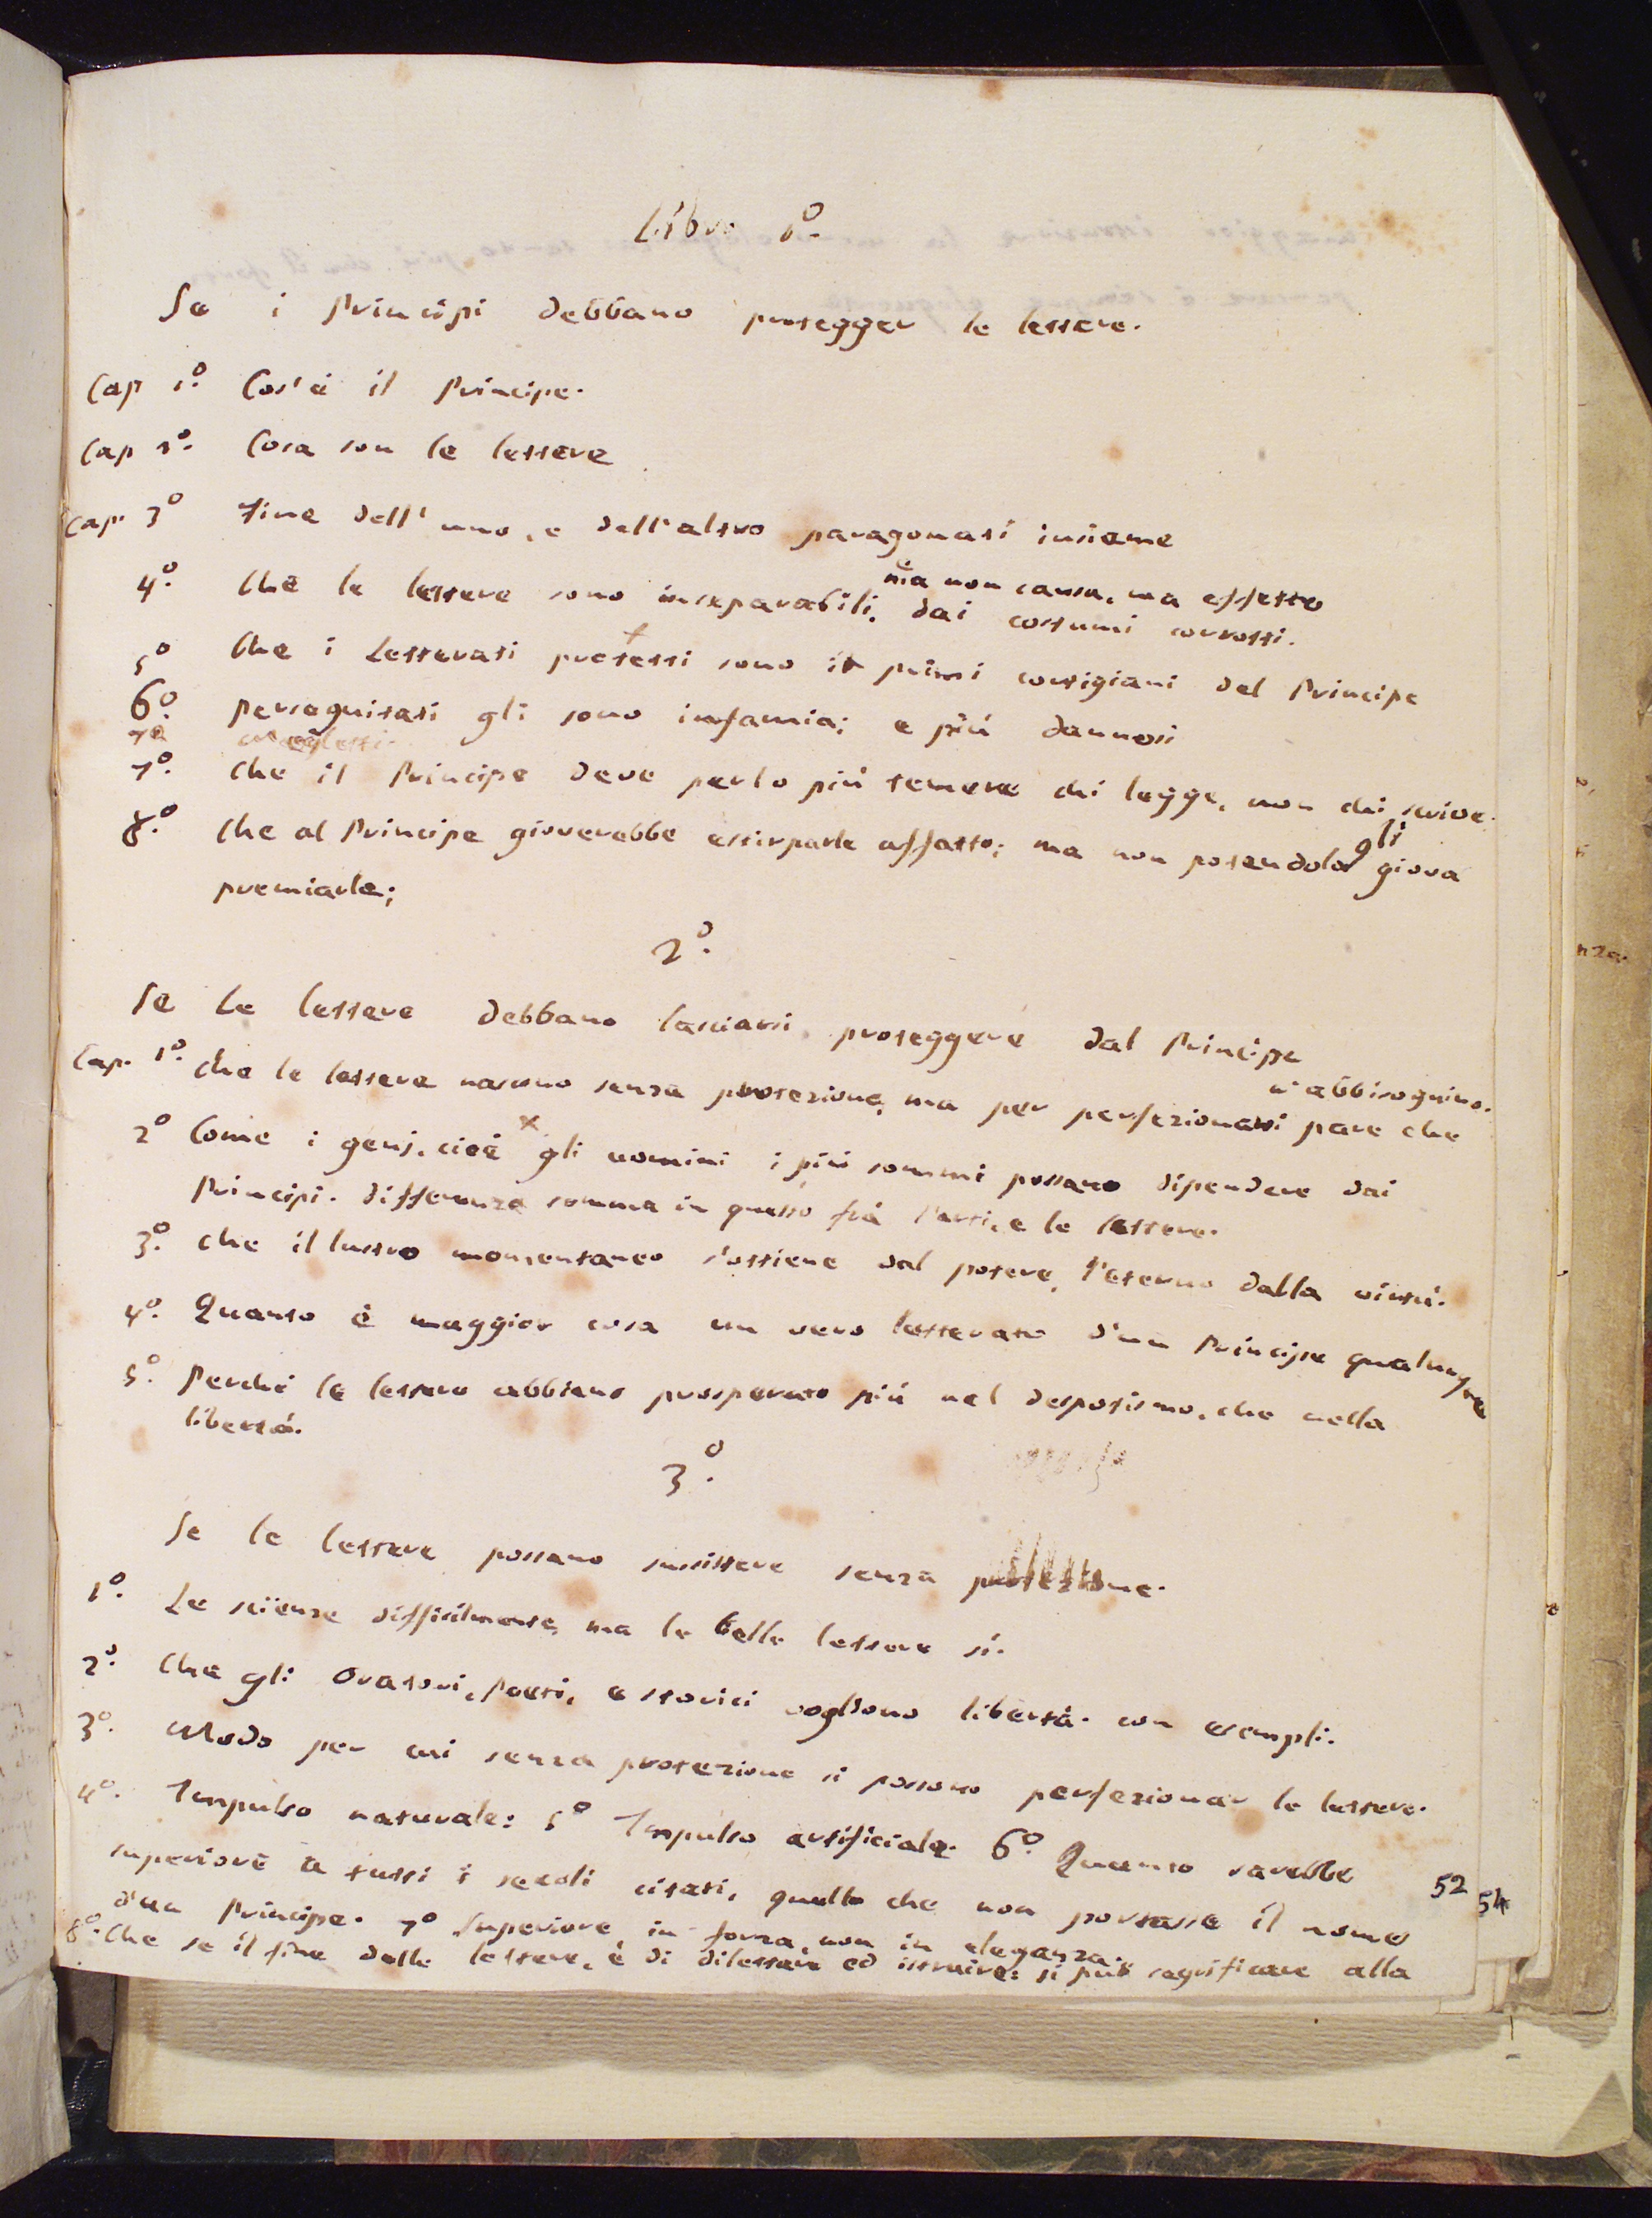 Libro 1º.
Se i Principi debbano protegger le lettere.
Cap 1º. Cos'è il Principe.
Cap 2º. Cosa son le lettere
Cap. 3º Fine dell'uno, e dell'altro paragonati insieme
ma non causa, ma effetto
4º. Che le lettere sono inseparabili, dai costumi corrotti.
5º Che i Letterati protetti sono i primi cortigiani del Principe
6º. perseguitati gli sono infamia; e più dannosi
7º negletti.
7º. Che il Principe deve perlo più temere chi legge, non chi scrive.
8º. Che al Principe gioverebbe estirparle affatto; ma non potendolo gli giova
premiarle;
2º.
Se Le lettere debbano lasciarsi proteggere dal Principe
n'abbisognino.
Cap. 1º. Che le lettere nascono senza protezione, ma per perfezionarsi pare che
2º Come i genj, cioè gli uomini i più sommi possano dipendere dai
Principi. differenza somma in questo frà l'arti, e le lettere.
3º. Che il lustro momentaneo s'ottiene dal potere, l'eterno dalla virtù.
4º. Quanto è maggior cosa un vero letterato d'un Principe qualunque
5º. Perché le lettere abbiano prosperato più nel despotismo, che nella
libertà.
3º.
Se le lettere possano sussistere senza protezione.
1º. Le scienze difficilmente, ma le belle lettere sì.
2º. Che gli Oratori, Poeti, e storici vogliono libertà. con esempli.
3º. Modo per cui senza protezione si possono perfezionar le lettere.
4º. Impulso naturale: 5º Impulso artificiale. 6º Quanto sarebbe
superiore a tutti i secoli citati, quello che non portasse il nome
d'un Principe. 7º Superiore, in forza, non in eleganza.
8º. Che se il fine delle lettere, è di dilettare ed istruire: si può sagrificare alla
52 54